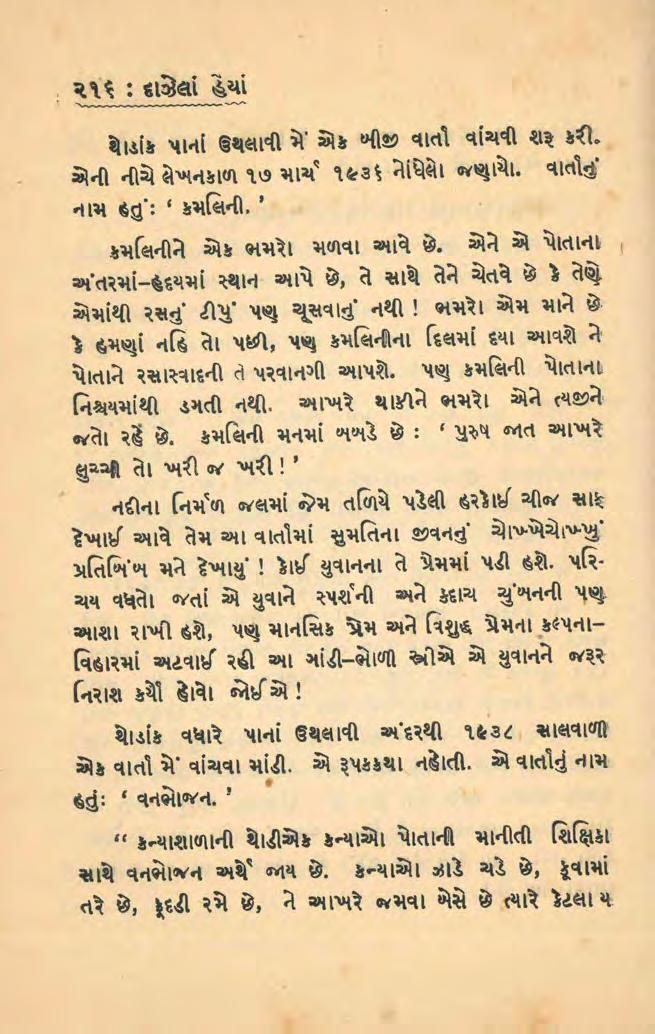 ૨૧૬ : દાઝેલાં હૈયાં
થોડાંક પાનાં ઉથલાવી મેં એક બીજી વાર્તા વાંચવી શરૂ કરી.
એની નીચે લેખનકાળ ૧૭ માર્ચ ૧૯૩૬ નોંધેલો જણાયો. વાર્તાનું
નામ હતું: ‘ કમલિની. ’
કમલિનીને એક ભમરો મળવા આવે છે. એને એ પોતાના
અંતરમાં–હૃદયમાં સ્થાન આપે છે, તે સાથે તેને ચેતવે છે કે તેણે
એમાંથી રસનું ટીપું પણ ચૂસવાનું નથી ! ભમરો એમ માને છે
કે હમણાં નહિ તો પછી, પણ કમલિનીના દિલમાં દયા આવશે ને
પોતાને રસાસ્વાદની તે પરવાનગી આપશે. પણ કમલિની પોતાના
નિશ્ચયમાંથી ડગતી નથી. આખરે થાકીને ભમરો એને ત્યજીને
જતો રહે છે. કમલિની મનમાં બબડે છે : ‘ પુરુષ જાત આખરે
લુચ્ચી તો ખરી જ ખરી ! ’
નદીના નિર્મળ જલમાં જેમ તળિયે પડેલી હરકોઈ ચીજ સાફ
દેખાઈ આવે તેમ આ વાર્તામાં સુમતિના જીવનનું ચોખ્ખેચોખ્ખું
પ્રતિબિંબ મને દેખાયું ! કોઈ યુવાનના તે પ્રેમમાં પડી હશે. પરિ-
ચય વધતો જતાં એ યુવાને સ્પર્શની અને કદાચ ચુંબનની પણ
આશા રાખી હશે, પણ માનસિક પ્રેમ અને વિશુદ્ધ પ્રેમના કલ્પના–
વિહારમાં અટવાઈ રહી આ ગાંડી–ભોળી સ્ત્રીએ એ યુવાનને જરૂર
નિરાશ કર્યો હોવો જોઈએ !
થોડાંક વધારે પાનાં ઉથલાવી અંદરથી ૧૯૩૮ સાલવાળી
એક વાર્તા મેં વાંચવા માંડી. એ રૂપકકથા નહોતી. એ વાર્તાનું નામ
હતું: ‘ વનભોજન. ’
“ કન્યાશાળાની થોડીએક કન્યાઓ પોતાની માનીતી શિક્ષિકા
સાથે વનભોજન અર્થે જાય છે. કન્યાઓ ઝાડે ચડે છે, કૂવામાં
તરે છે, ફૂદડી રમે છે, ને આખરે જમવા બેસે છે ત્યારે કેટલાય